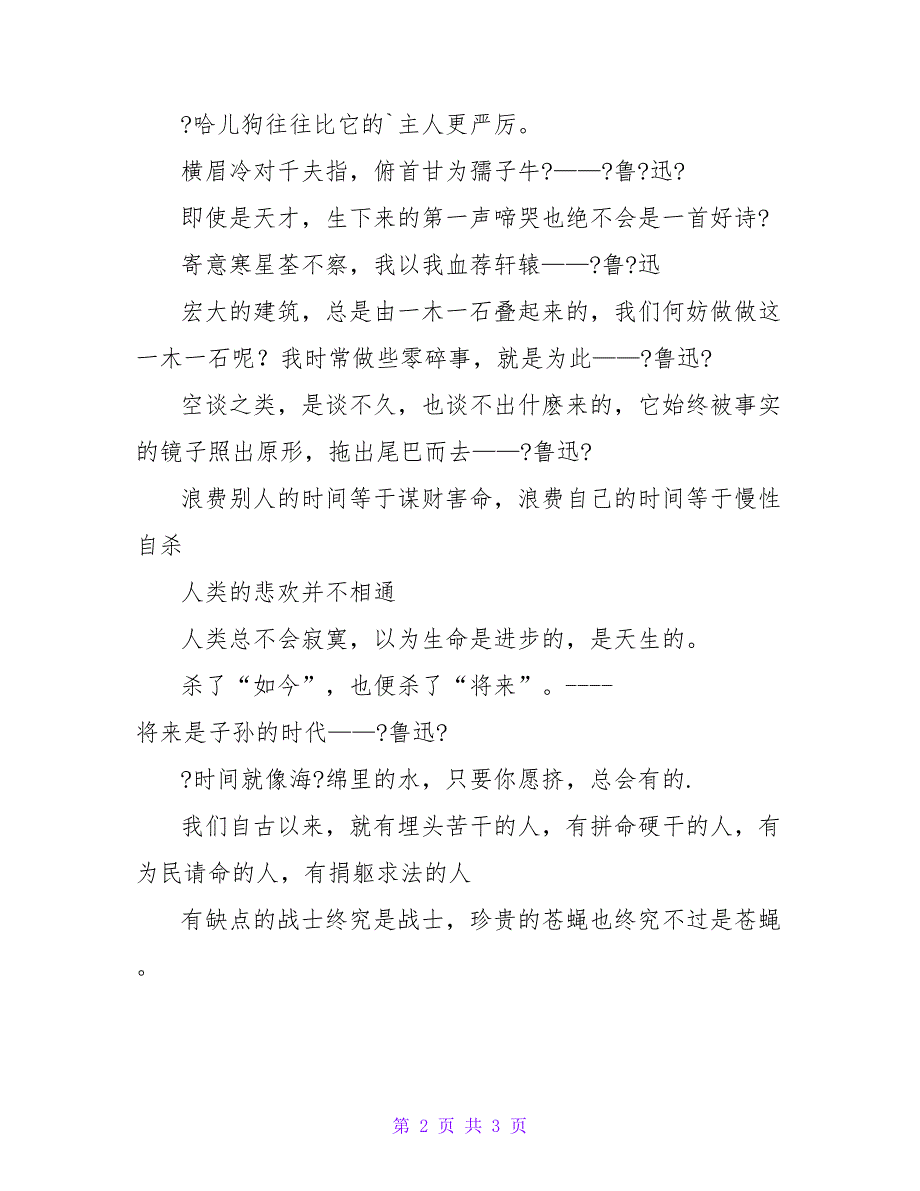 ?哈儿狗往往比它的`主人更严厉。
横眉冷对千夫指，俯首甘为孺子牛?——?鲁?迅?
即使是天才，生下来的第一声啼哭也绝不会是一首好诗?
寄意寒星荃不察，我以我血荐轩辕——?鲁?迅
宏大的建筑，总是由一木一石叠起来的，我们何妨做做这
一木一石呢？我时常做些零碎事，就是为此——?鲁迅?
空谈之类，是谈不久，也谈不出什麽来的，它始终被事实
的镜子照出原形，拖出尾巴而去——?鲁迅?
浪费别人的时间等于谋财害命，浪费自己的时间等于慢性
自杀
人类的悲欢并不相通
人类总不会寂寞，以为生命是进步的，是天生的。
杀了“如今”，也便杀了“将来”。----
将来是子孙的时代——?鲁迅?
?时间就像海?绵里的水，只要你愿挤，总会有的.
我们自古以来，就有埋头苦干的人，有拼命硬干的人，有
为民请命的人，有捐躯求法的人
有缺点的战士终究是战士，珍贵的苍蝇也终究不过是苍蝇
。
第 2 页 共 3 页